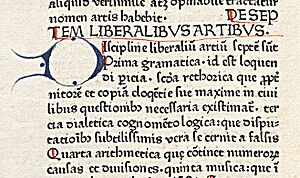 aliquid verissimile atq; opinabile tractatur
nomen artis habebit. DE SEP
TEM LIBERALIBVS ARTIBVS.
Discipline liberaliũ artiũ septẽ sũt
Prima gramatica. id est loquen
di pícia. Scda rethorica que ꝓpt̃
nitorẽ et copiã eloq̃tie sue maxime in civi
libus questionib; necessaria existimat̃. ter
cia dialetica cognom̃eto logica: que dispu
tacioĩb; subtilissimis vera secernit a falsis
Quarta arithmetica que cõtinet numeroꝝ
causas et divisiones. quinta musica: que ĩ